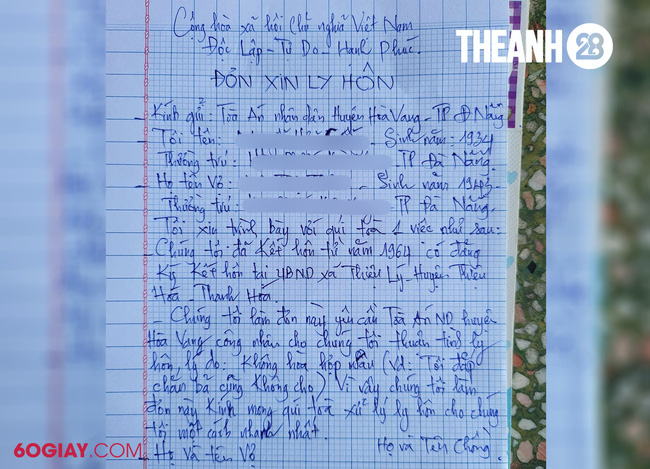 Cộng hòa xã hội chủ nghĩa Việt Nam
Độc Lập - Tự Do - Hạnh Phúc.
THEANH28
ĐƠN XIN LY HÔN
- Kính gửi: Tòa Án nhân dân Huyện Hòa Vang - TP Đ Nẵng
- Tôi tên: - Sinh năm: 1934
Thường trú: TP Đà Nẵng.
- Họ tên Vợ: - Sinh năm 1943.
Thường trú: TP Đà Nẵng.
Tôi xin trình bày với quí tòa 1 việc như sau:
- Chúng tôi đã Kết hôn từ năm 1964 có đăng
Ký Kết hôn tại UBND xã Thiệu Lý - Huyện Thiệu
Hóa - Thanh Hóa.
- Chúng tôi làm đơn này yêu cầu Tòa Án ND huyện
Hòa Vang công nhận cho chúng tôi thuận tình ly
hôn, lý do: Không hòa hợp nhau (Vd: Tôi đắp
chăn bà cũng không cho) Vì vậy chúng tôi làm
đơn này Kính mong quí tòa xử lý ly hôn cho chúng
tôi một cách nhanh nhất.
Họ và Tên Chồng
- Họ và tên Vợ
60GIAY.COM